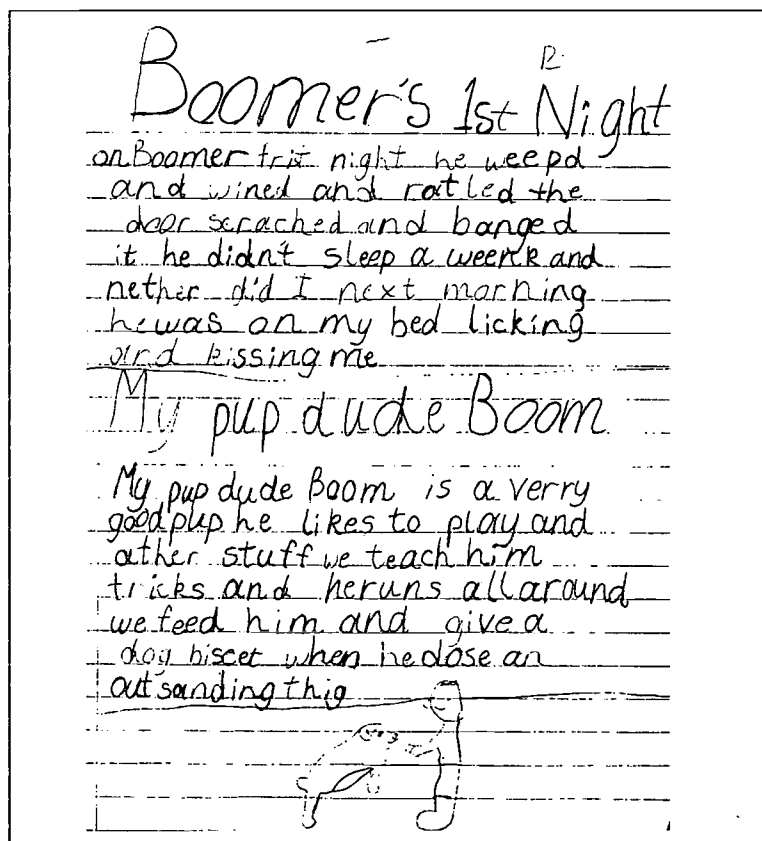 Boomer's 1st Night
on Boomer frist night he weepd
and wined and ratled the
door scrached and banged
it he didn't sleep a weenk and
nether did I next morning
he was on my bed licking
and kissing me
My pup dude Boom
My pup dude Boom is a verry
good pup he likes to play and
other stuff we teach him
tricks and he runs all around
we feed him and give a
dog biscet when he dose an
out sanding thig